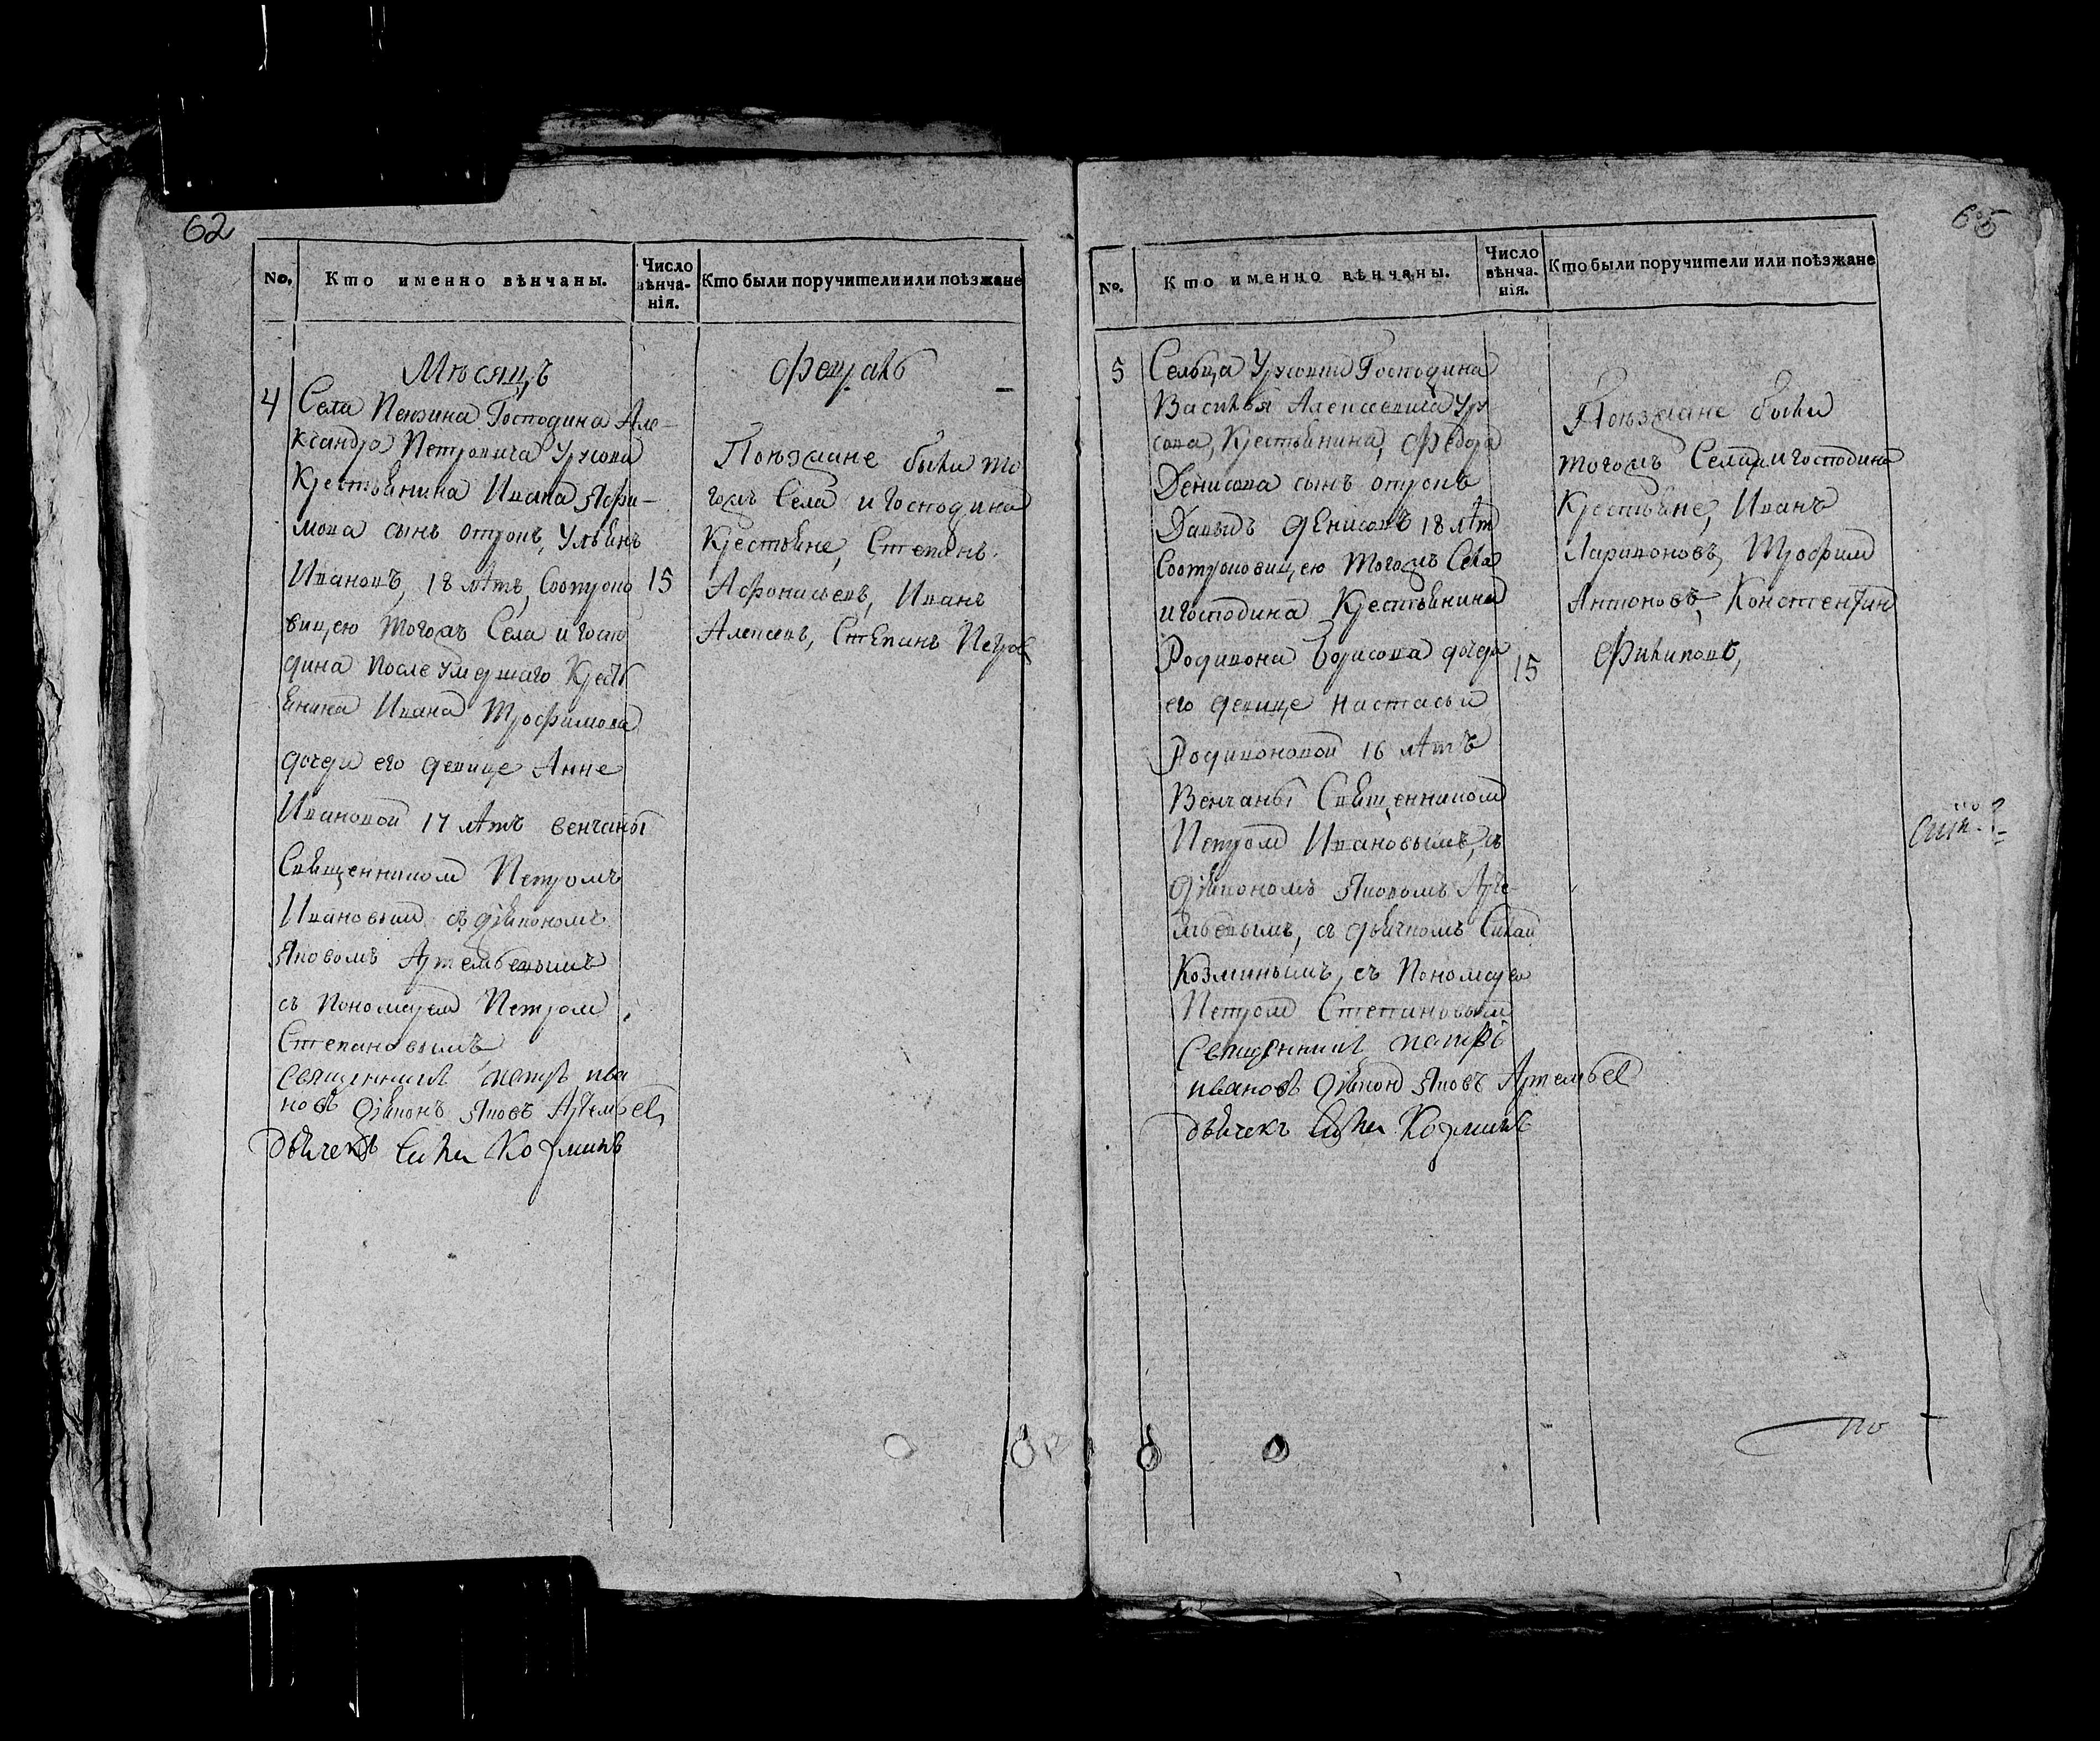 62
No.
Кто именно вѣнчаны.
Число вѣнча-нія.
Кто были поручители или поѣзжане
Мѣсяцъ
4
Села Пензина Господина Але-
ксандра Петровича Урусова
Крестьянина Ивана Яфи-
мова сынъ отрокъ, Ульянъ
Ивановъ, 18 лѣтъ, Соотроко
вицею тогожъ Села и госпо
дина после умершаго Кресть
янина Ивана Трофимова
дочери его девице Анне
Ивановой 17 лѣтъ венчаны
Священником Петромъ
Ивановым съ дьякономъ
Яковомъ Артемьевымъ
съ пономарем Петром
Степановымъ
священникъ петръ ива
новъ дьяконъ Яковъ Артемьев
дьячекъ Сила Козминъ
15
февраль
Поѣзжане были то
гожъ Села и господина
Крестьяне, Степанъ
Афонасьевъ, Иванъ
Алексевъ, Степанъ Петров
65
No.
Кто именно вѣнчаны.
Число вѣнча-нія.
Кто были поручители или поѣзжане
5
Сельца Урусова Господина
Василья Алексеевича Уру
сова, Крестьянина, Федора
Денисова сынъ отрокъ
Давыдъ Денисовъ 18 лѣт
Соотроковицею тогожъ Села
и господина Крестьянина
Родивона Борисова дочери
его девице Настасьи
Родивоновой 16 лѣтъ
Венчаны Священником
Петром Ивановымъ, съ
дьякономъ Яковомъ Арте-
мьевымъ, съ дьячкомъ Силой
Козминымъ, съ Пономарем
Петром Степановым
Священникъ петръ
ивановъ дьякон Яковъ Артемьев
дьячекъ Сила Козминъ
15
Поѣзжане были
тогожъ Села и господина
Крестьяне, Иванъ
Ларивоновъ, Трофим
Антоновъ, Констентин
Филиповъ,
по